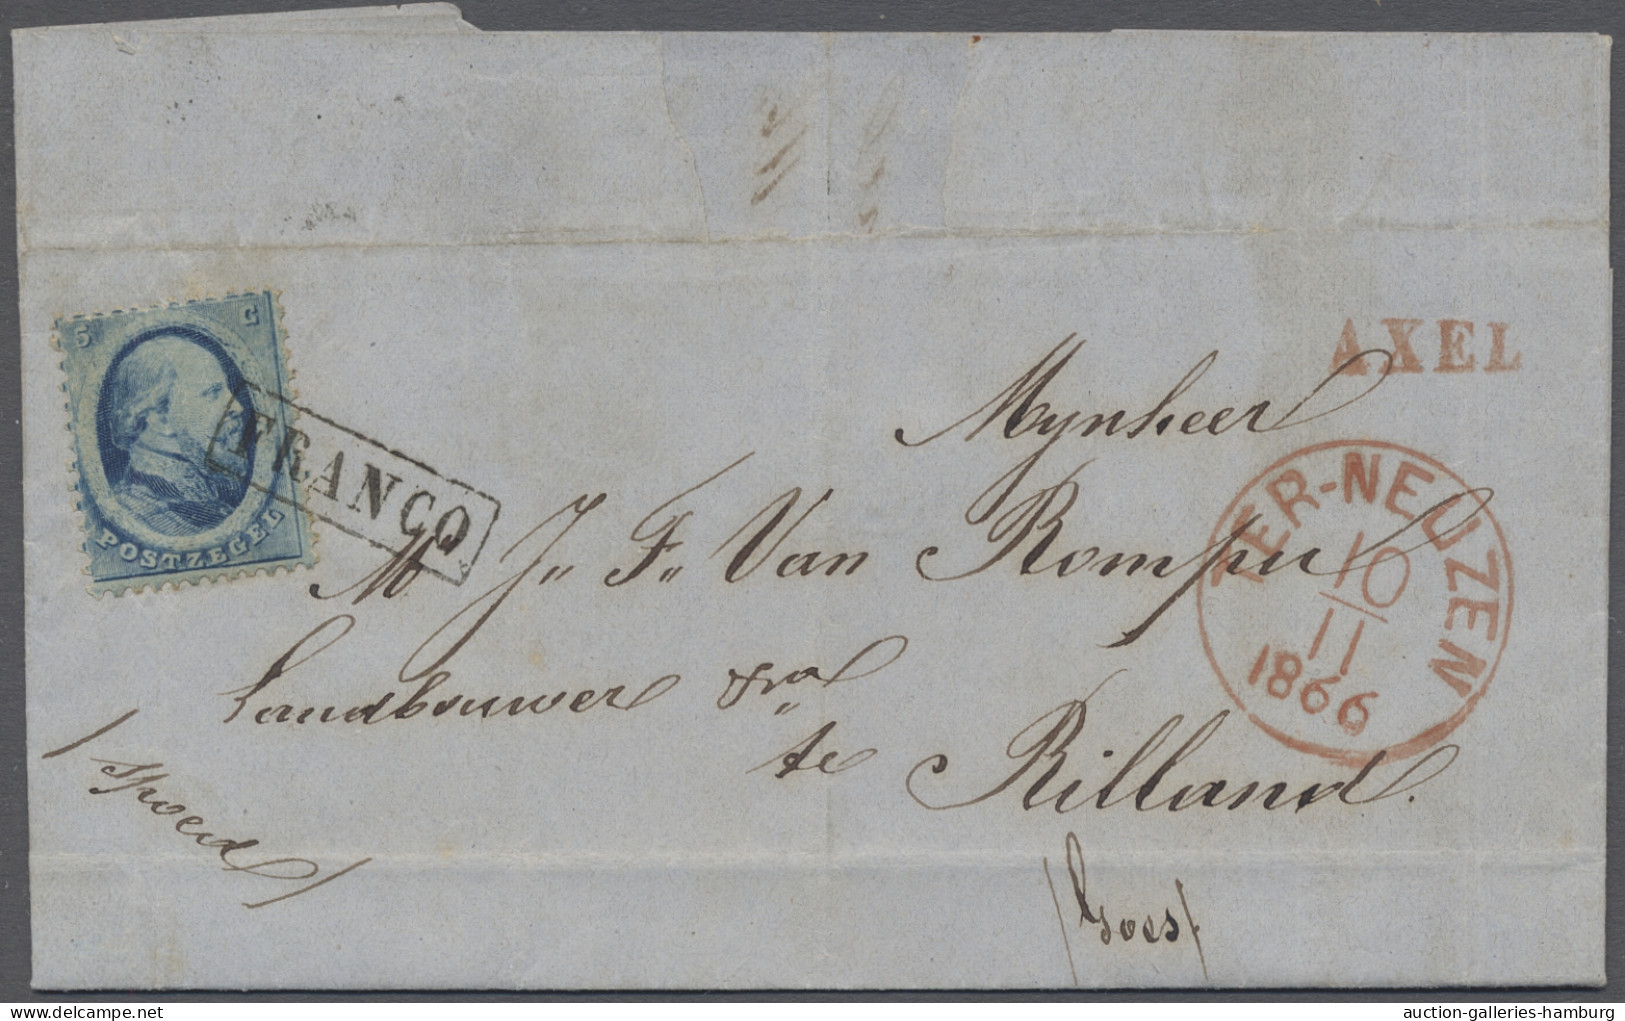 5 C
POSTZEGEL
FRANCO
AXEL
TER-NEUZEN
10
11
1866
Mynheer
Mr J. F. Van Rompu
Landbouwer
te Rilland.
/spoed/
/Goes/
auction-galleries-hamburg